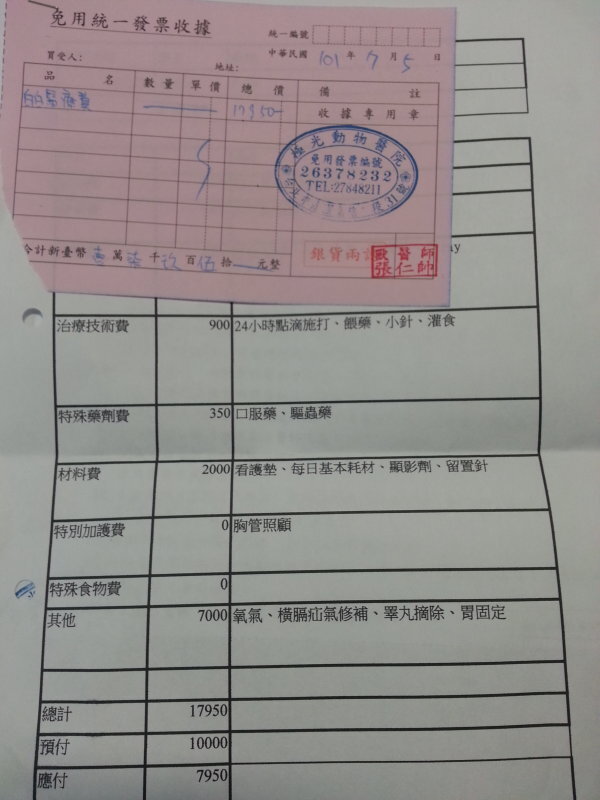 免用統一發票收據
統一編號
中華民國 101 年 7 月 5 日
買受人：
地址：
品名 數量 單價 總價 備註
醫療費 17950 收據專用章
極光動物醫院
免用發票編號
26378232
TEL:27848211
合計新臺幣 壹 萬 柒 千 玖 百 伍 拾 元整
銀貨兩
醫師
張仁帥
ay
治療技術費 900 24小時點滴施打、餵藥、小針、灌食
特殊藥劑費 350 口服藥、驅蟲藥
材料費 2000 看護墊、每日基本耗材、顯影劑、留置針
特別加護費 0 胸管照顧
特殊食物費 0
其他 7000 氧氣、橫膈疝氣修補、睪丸摘除、胃固定
總計 17950
預付 10000
應付 7950